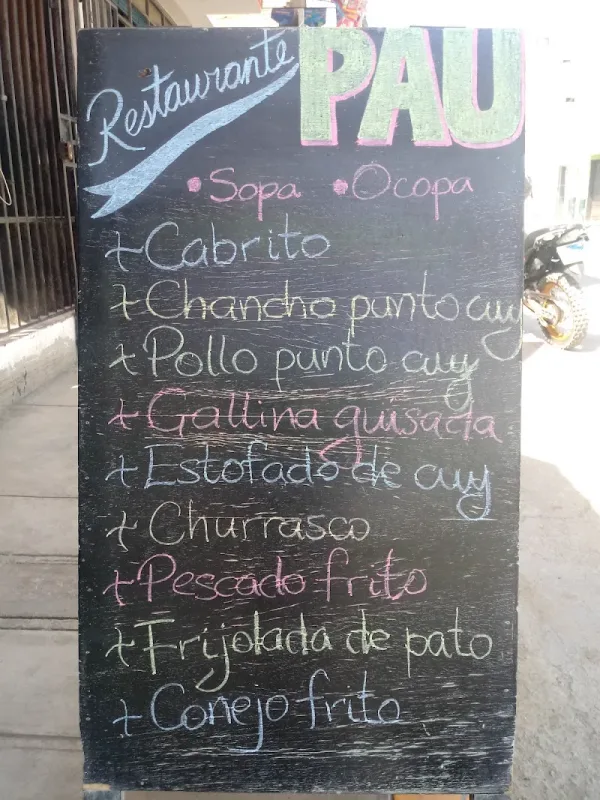 Restaurante PAU
• Sopa • Ocopa
+ Cabrito
+ Chancho punto cuy
+ Pollo punto cuy
+ Gallina guisada
+ Estofado de cuy
+ Churrasco
+ Pescado frito
+ Frijolada de pato
+ Conejo frito